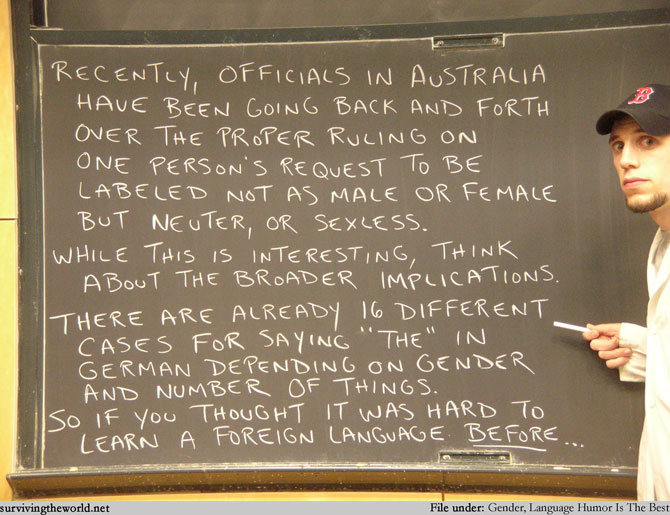 RECENTLY, OFFICIALS IN AUSTRALIA
HAVE BEEN GOING BACK AND FORTH
OVER THE PROPER RULING ON
ONE PERSON'S REQUEST TO BE
LABELED NOT AS MALE OR FEMALE
BUT NEUTER, OR SEXLESS.
WHILE THIS IS INTERESTING, THINK
ABOUT THE BROADER IMPLICATIONS.
THERE ARE ALREADY 16 DIFFERENT
CASES FOR SAYING "THE" IN
GERMAN DEPENDING ON GENDER
AND NUMBER OF THINGS.
SO IF YOU THOUGHT IT WAS HARD TO
LEARN A FOREIGN LANGUAGE BEFORE...
B
survivingtheworld.net
File under: Gender, Language Humor Is The Best